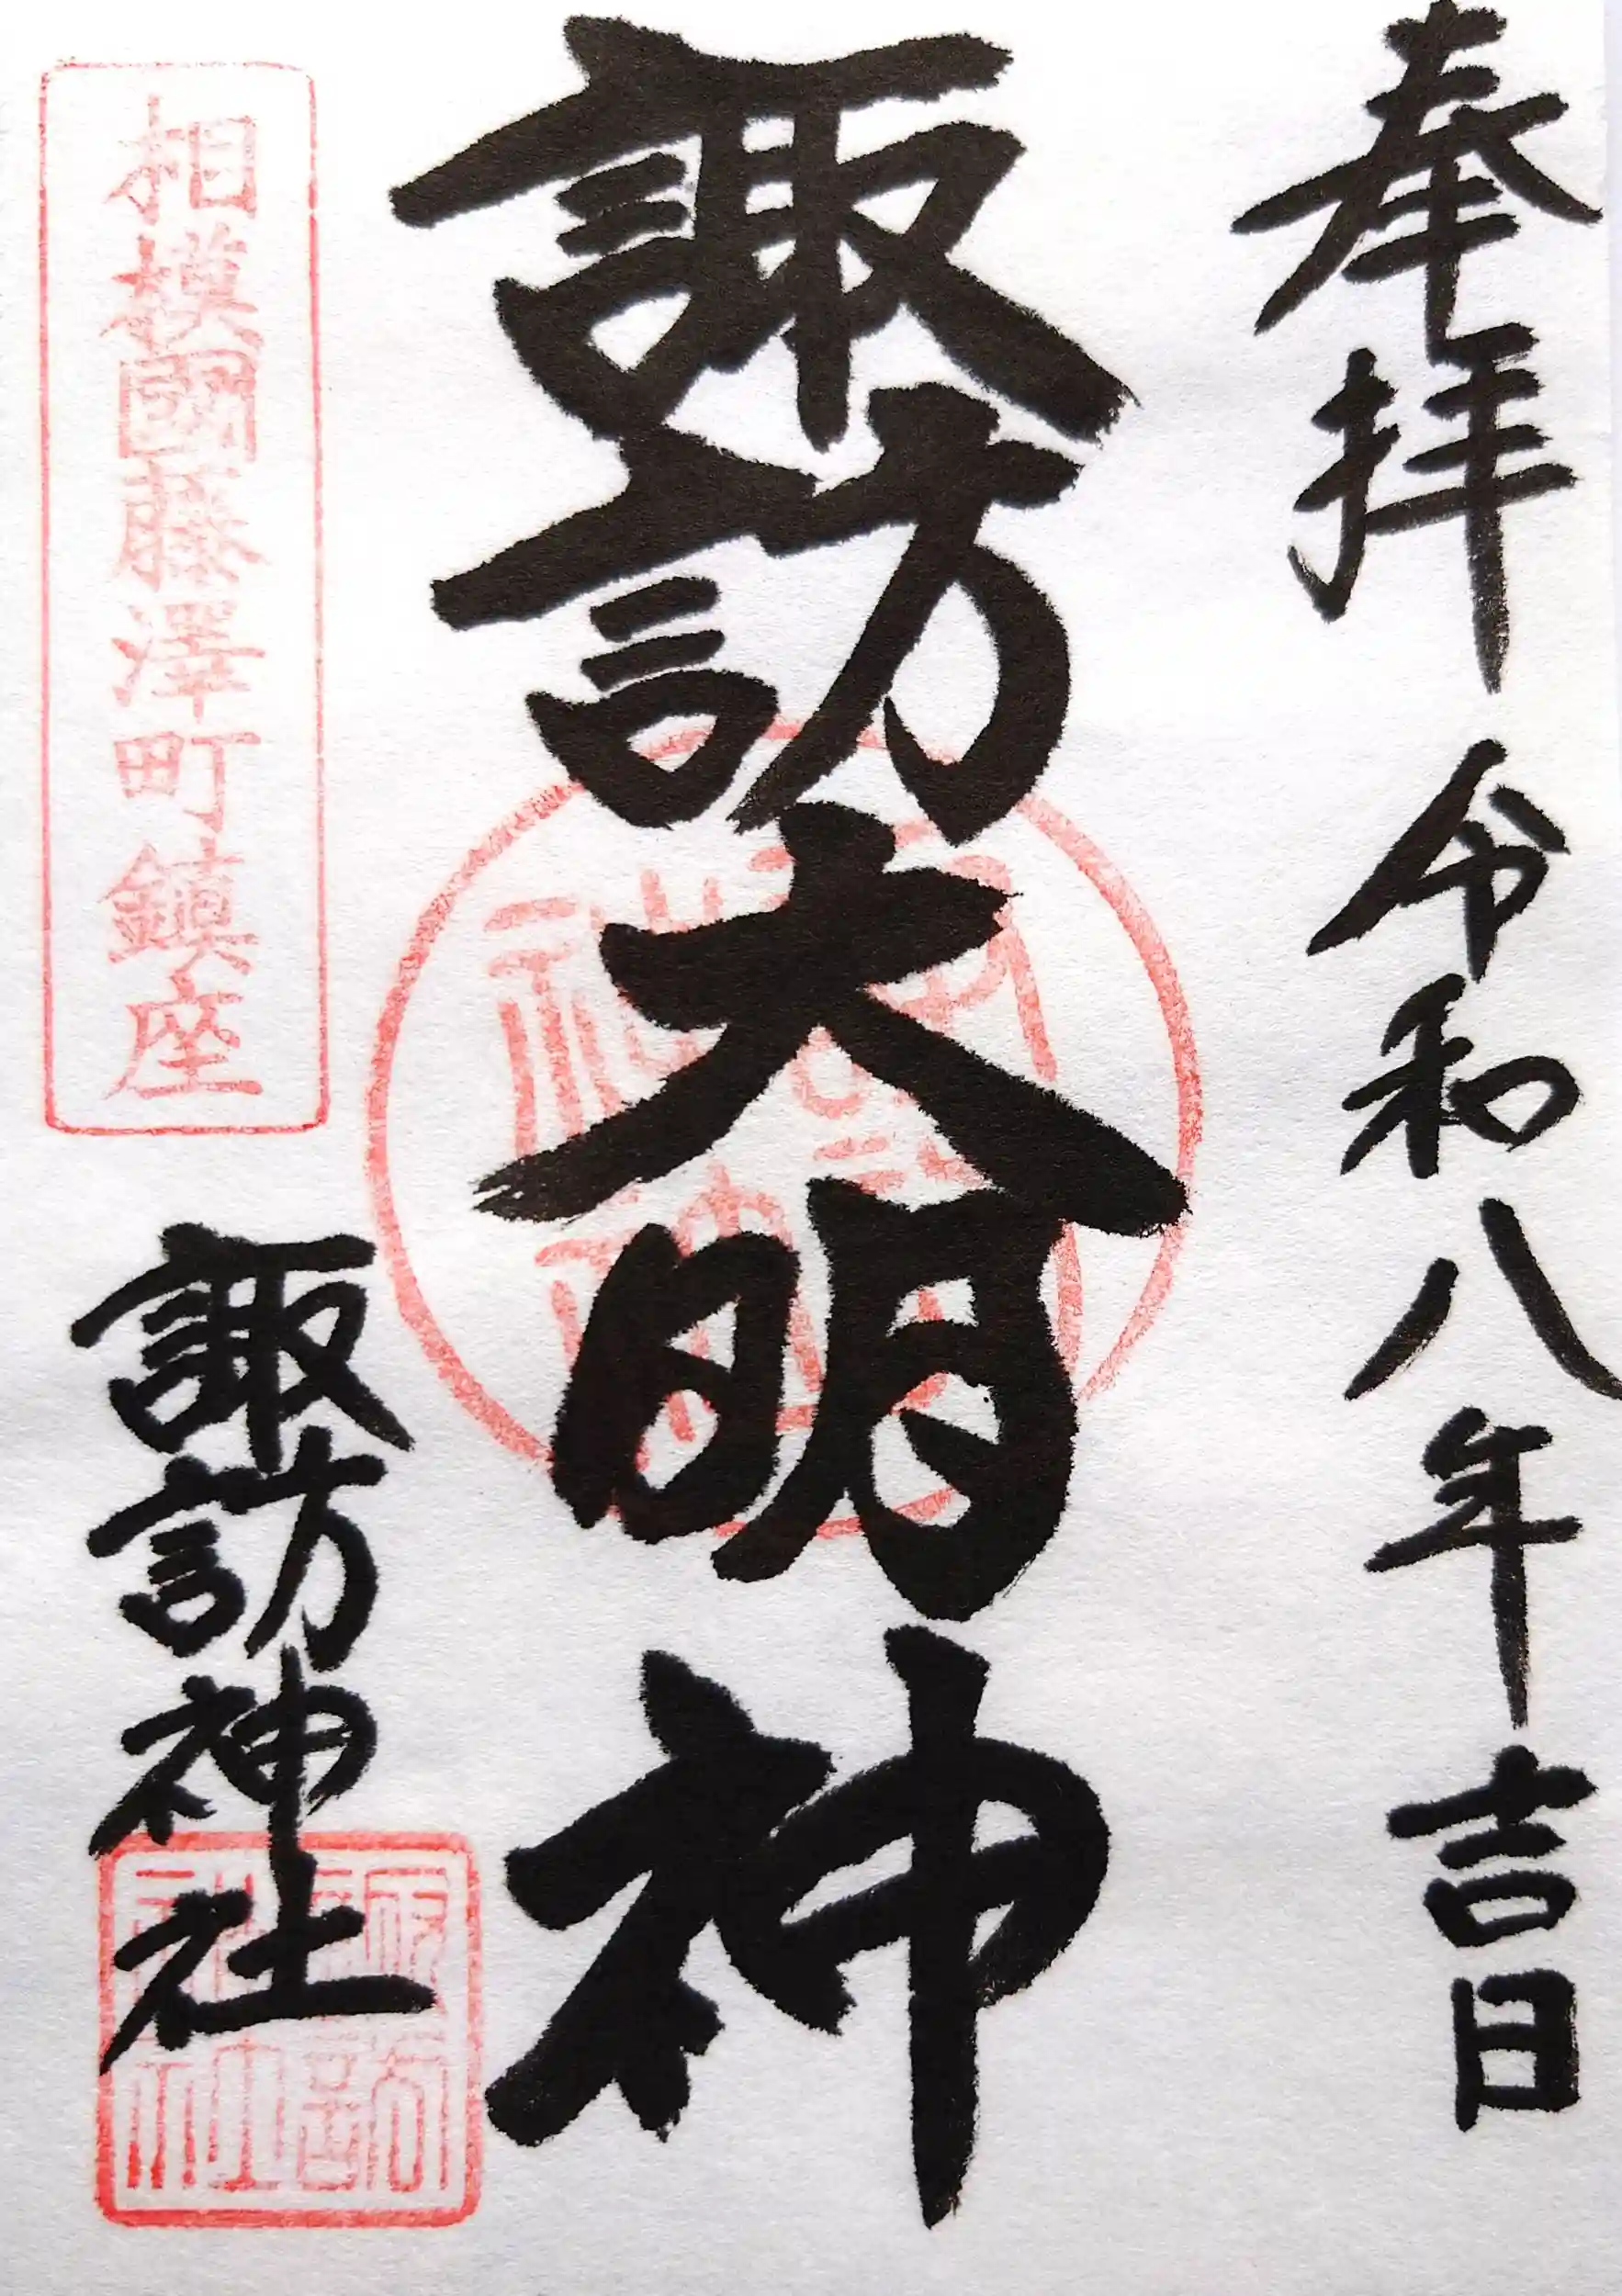 奉拝 令和八年吉日
諏訪大明神
相模國藤澤町鎮座
諏訪神社
諏訪神社